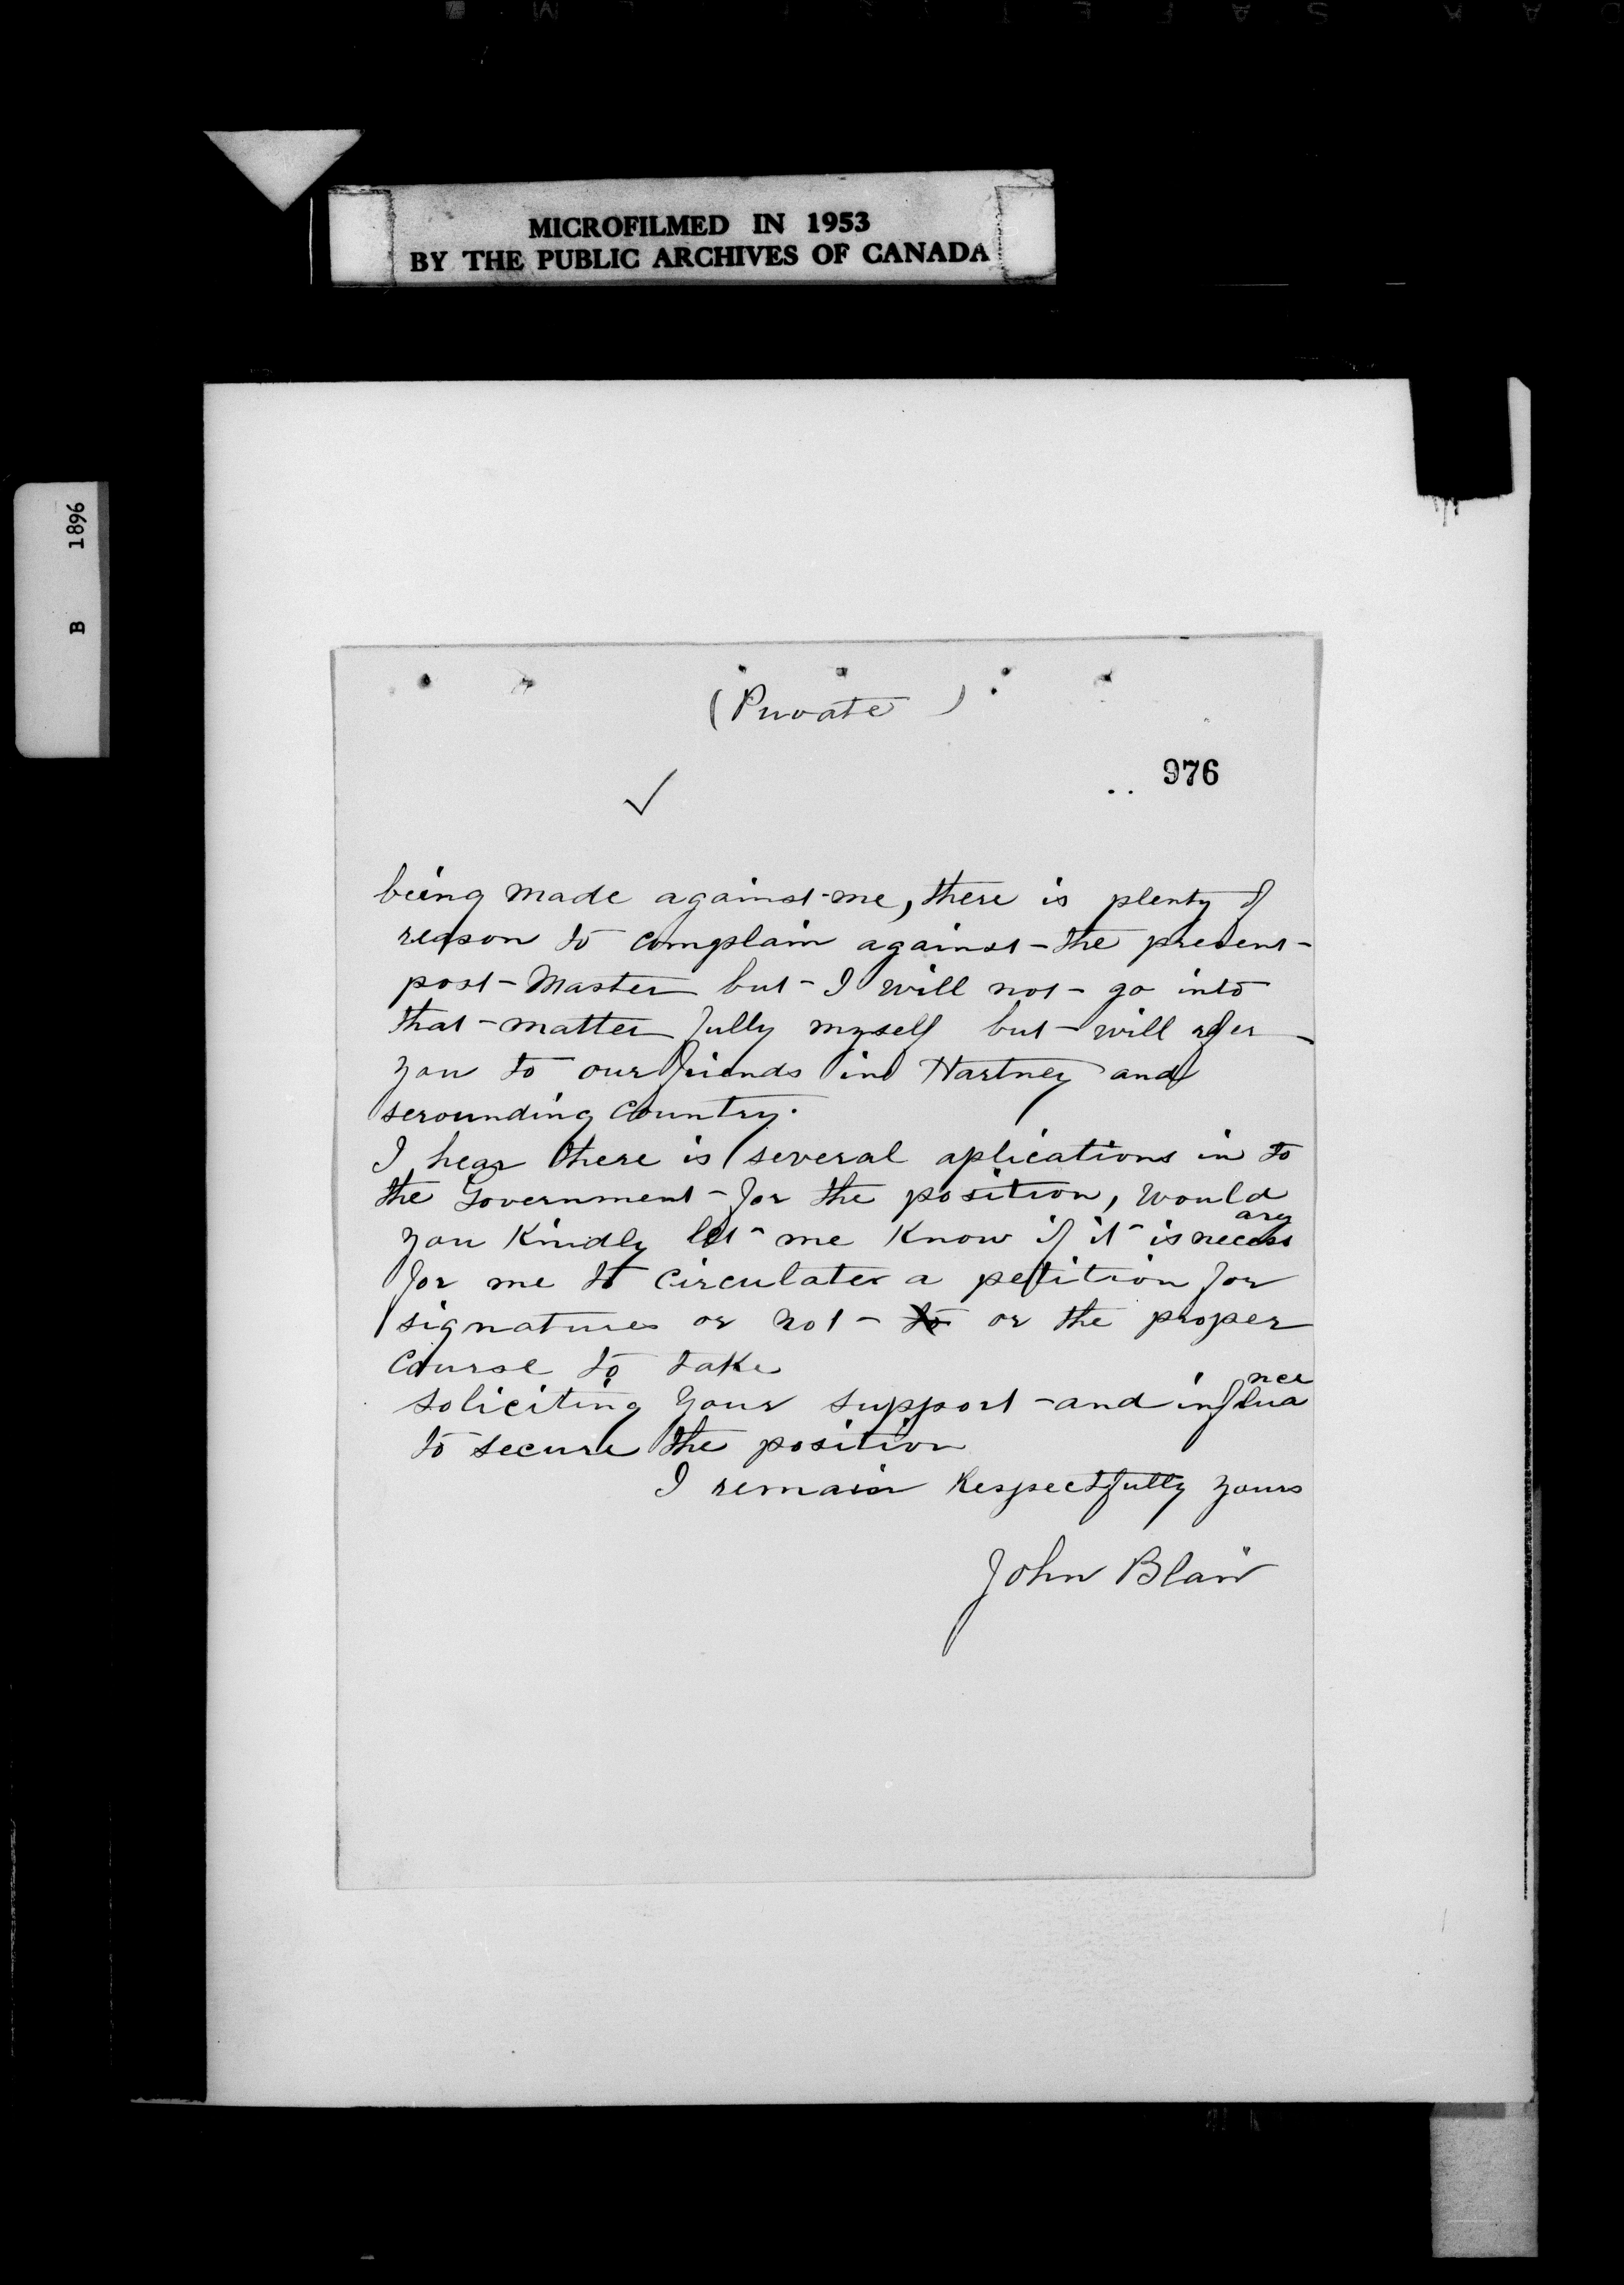 MICROFILMED IN 1953
BY THE PUBLIC ARCHIVES OF CANADA
B 1896
(Private)
976
being made against me, there is plenty of
reason to complain against the present
post Master but I will not go into
that matter fully myself but will refer
you to our friends in Hartney and
serounding country.
I hear there is several aplications in to
the Government for the position, would
you Kindly let me Know if it is necessary
for me to circulate a petition for
signatures or not to or the proper
course to take
soliciting your support and influance
to secure the position
I remain Respectfully yours
John Blair